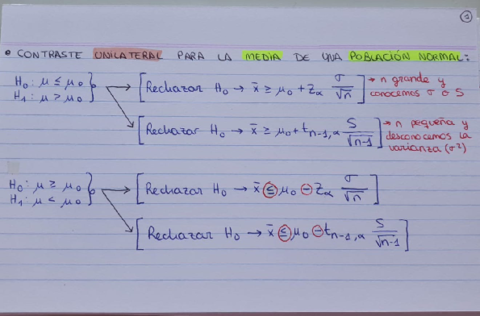 ①
• CONTRASTE UNILATERAL PARA LA MEDIA DE UNA POBLACIÓN NORMAL:
H₀: μ ≤ μ₀
H₁: μ > μ₀
[Rechazar H₀ → x̄ ≥ μ₀ + Zα σ/√n] → n grande y conocemos σ ó S
[Rechazar H₀ → x̄ ≥ μ₀ + tₙ₋₁,α S/√n-1] → n pequeña y desconocemos la varianza (σ²)
H₀: μ ≥ μ₀
H₁: μ < μ₀
[Rechazar H₀ → x̄ ≤ μ₀ − Zα σ/√n]
[Rechazar H₀ → x̄ ≤ μ₀ − tₙ₋₁,α S/√n-1]